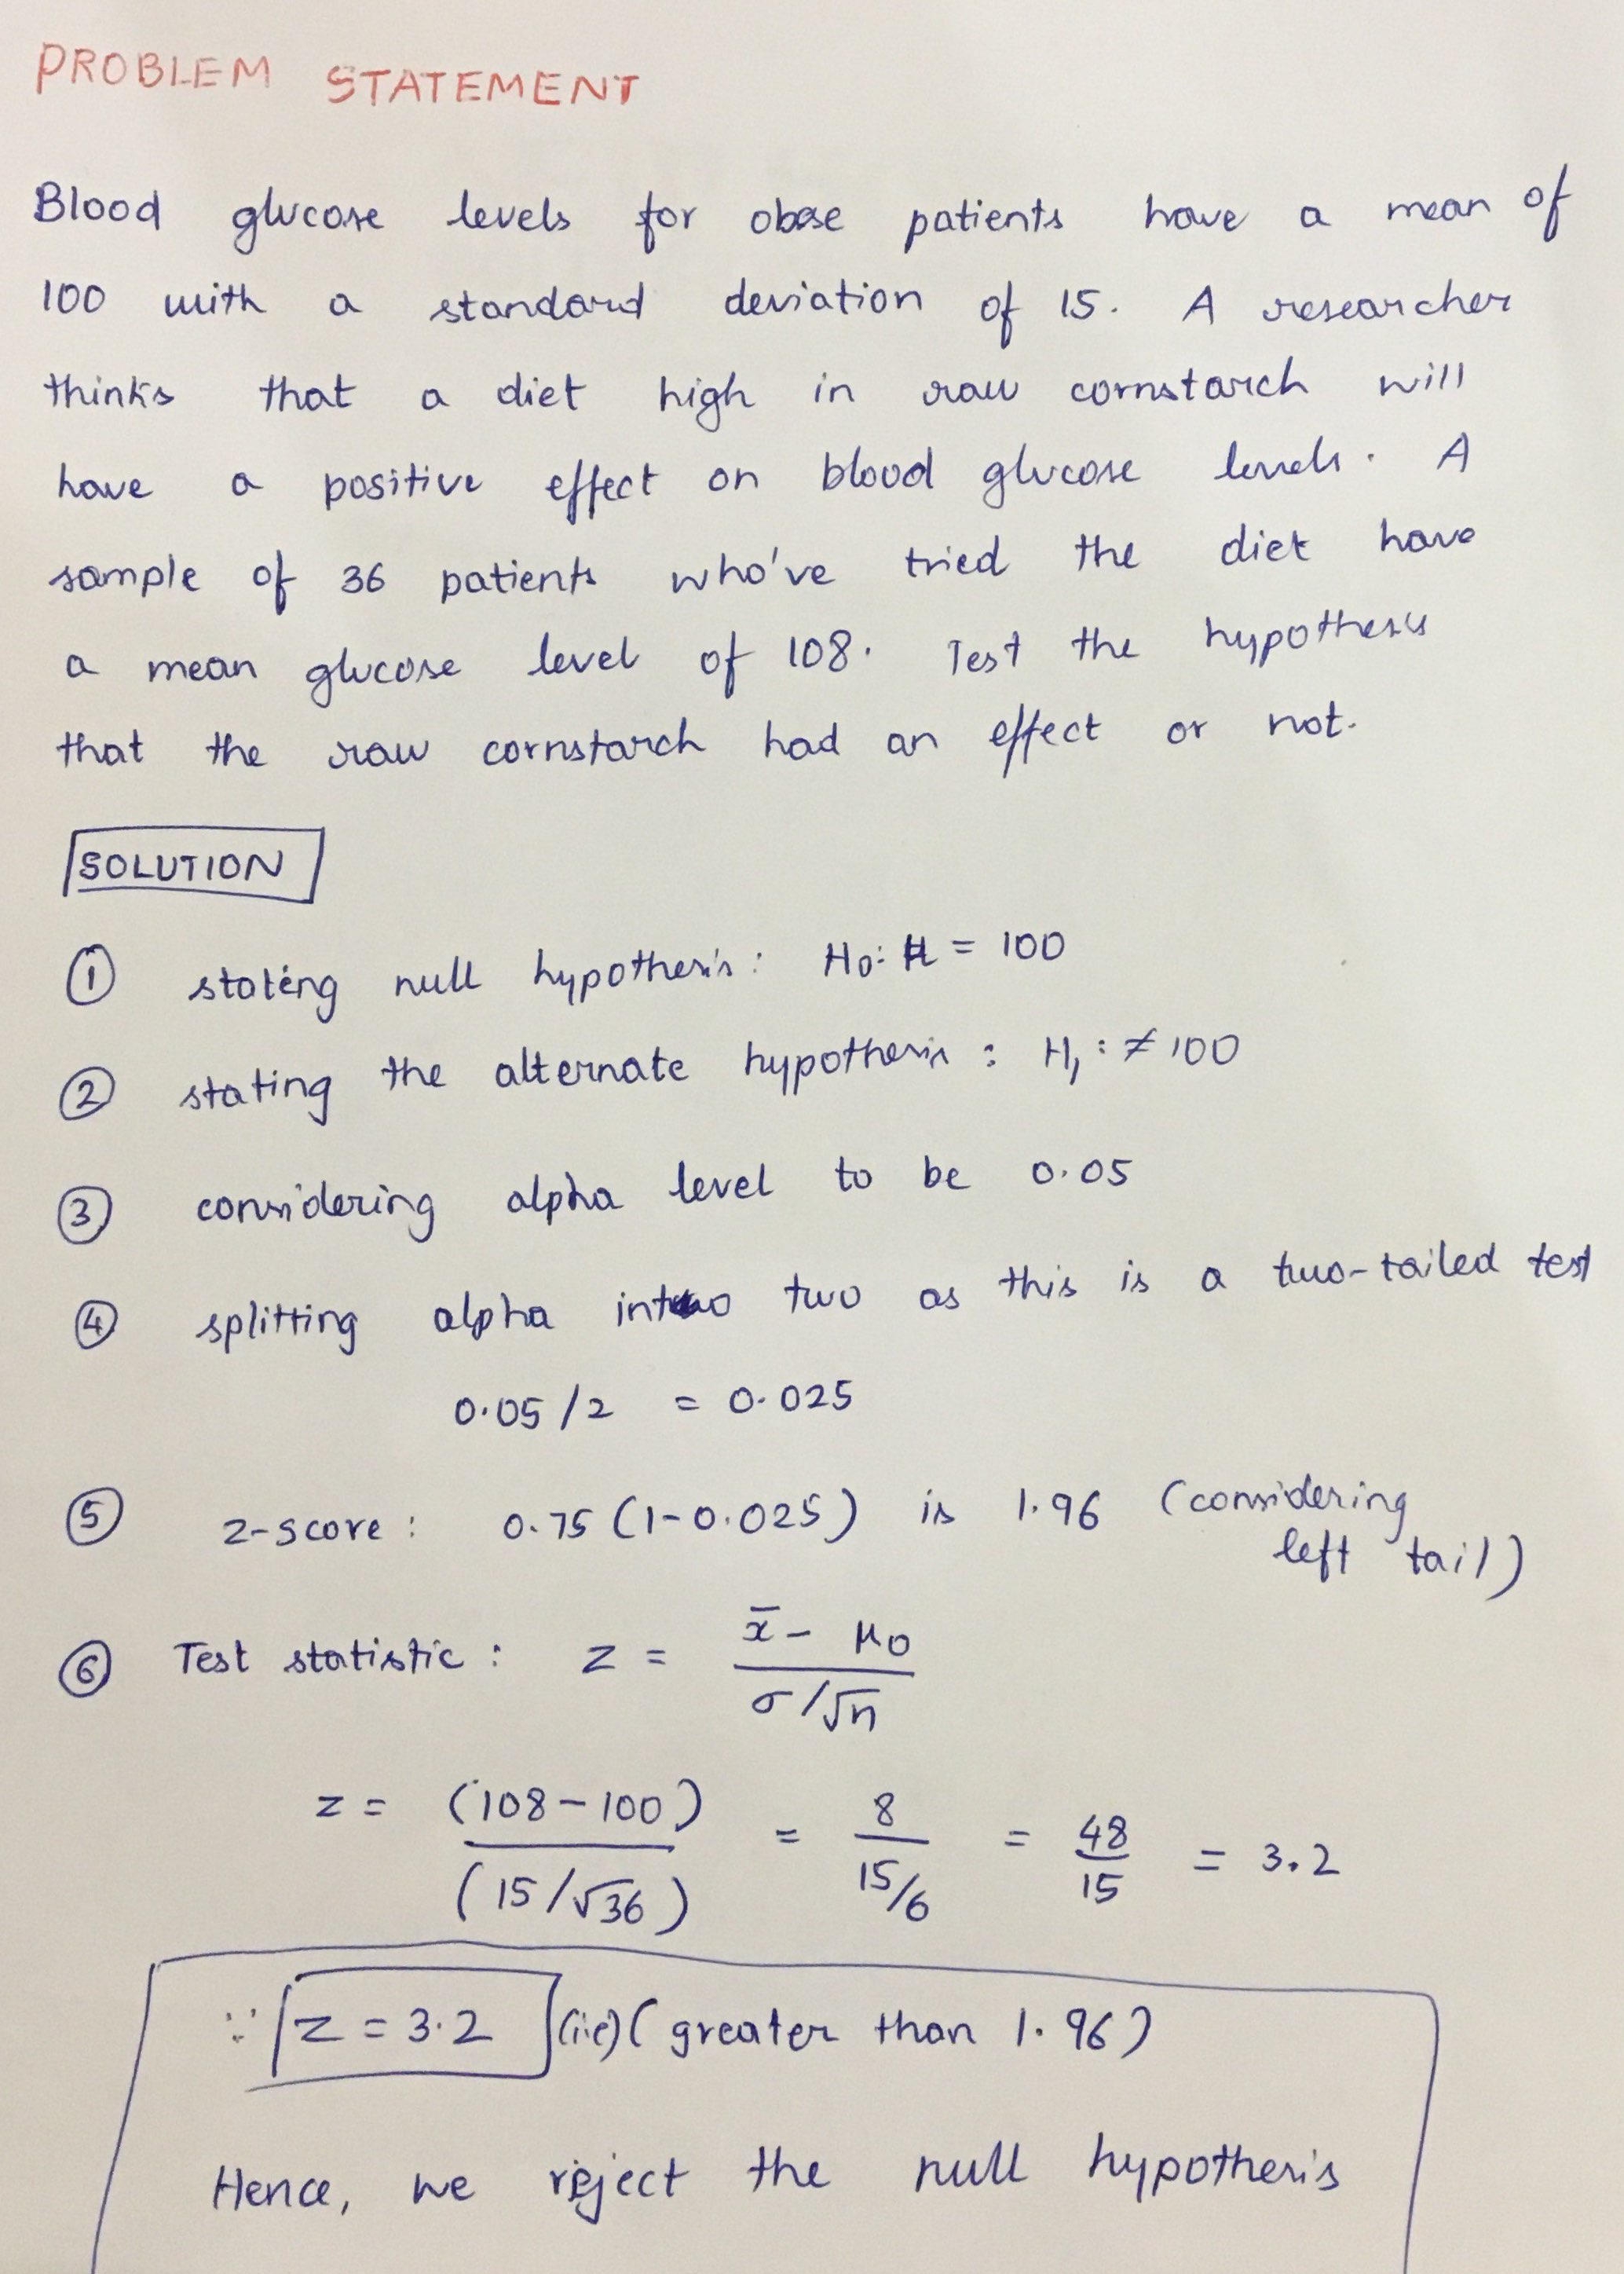 PROBLEM STATEMENT
Blood glucose levels for obese patients have a mean of
100 with a standard deviation of 15. A researcher
thinks that a diet high in raw cornstarch will
have a positive effect on blood glucose levels. A
sample of 36 patients who've tried the diet have
a mean glucose level of 108. Test the hypothesis
that the raw cornstarch had an effect or not.
SOLUTION
① stating null hypothesis: H₀: μ = 100
② stating the alternate hypothesis : H₁ : ≠ 100
③ considering alpha level to be 0.05
④ splitting alpha into two as this is a two-tailed test
0.05/2 = 0.025
⑤ z-score: 0.75 (1-0.025) is 1.96 (considering
left tail)
⑥ Test statistic : z = (x̄ - μ₀) / (σ/√n)
z = (108-100) / (15/√36) = 8 / (15/6) = 48/15 = 3.2
∵ z = 3.2 (i.e) (greater than 1.96)
Hence, we reject the null hypothesis